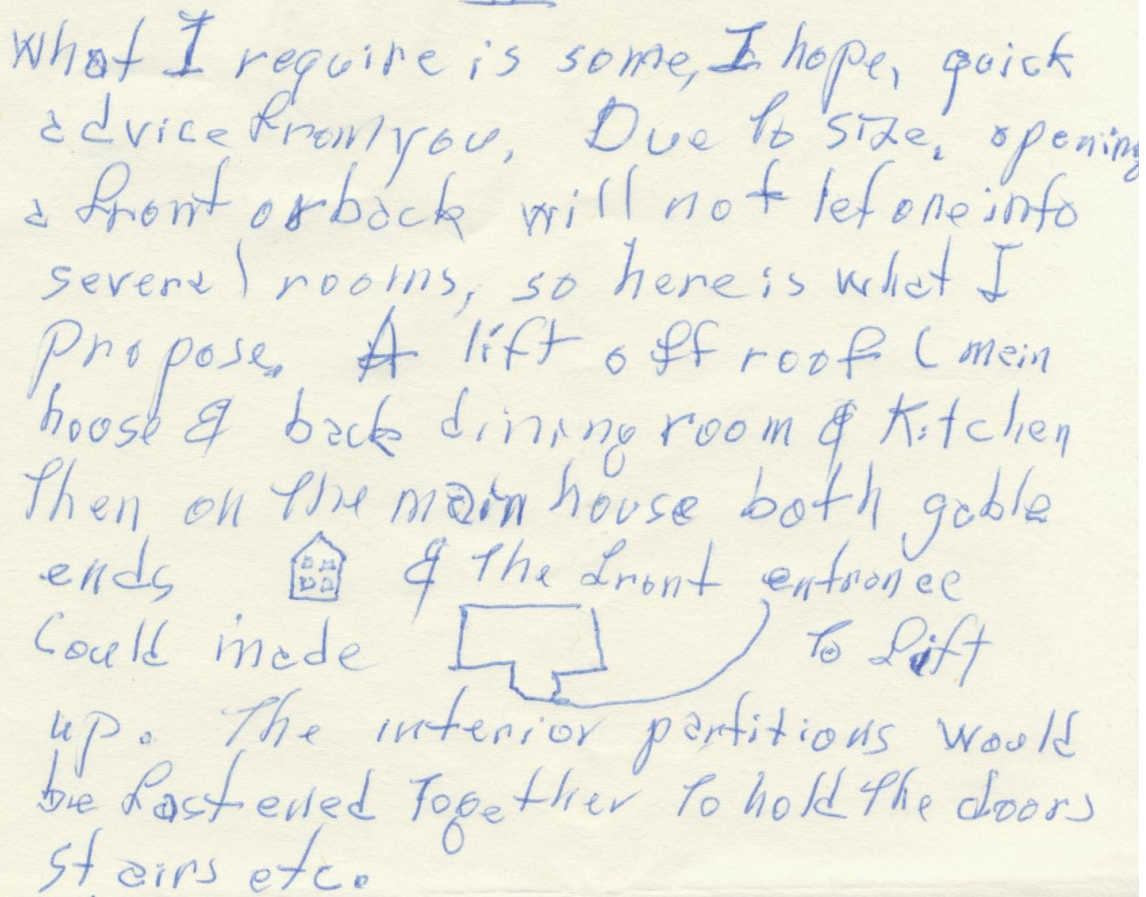 What I require is some, I hope, quick
advice from you. Due to size, opening
a front or back will not let one into
several rooms, so here is what I
propose. A lift off roof (main
house & back dining room & Kitchen
Then on the main house both gable
ends & the front entrance
Could made to lift
up. The interior partitions would
be fastened Together To hold the doors
stairs etc.